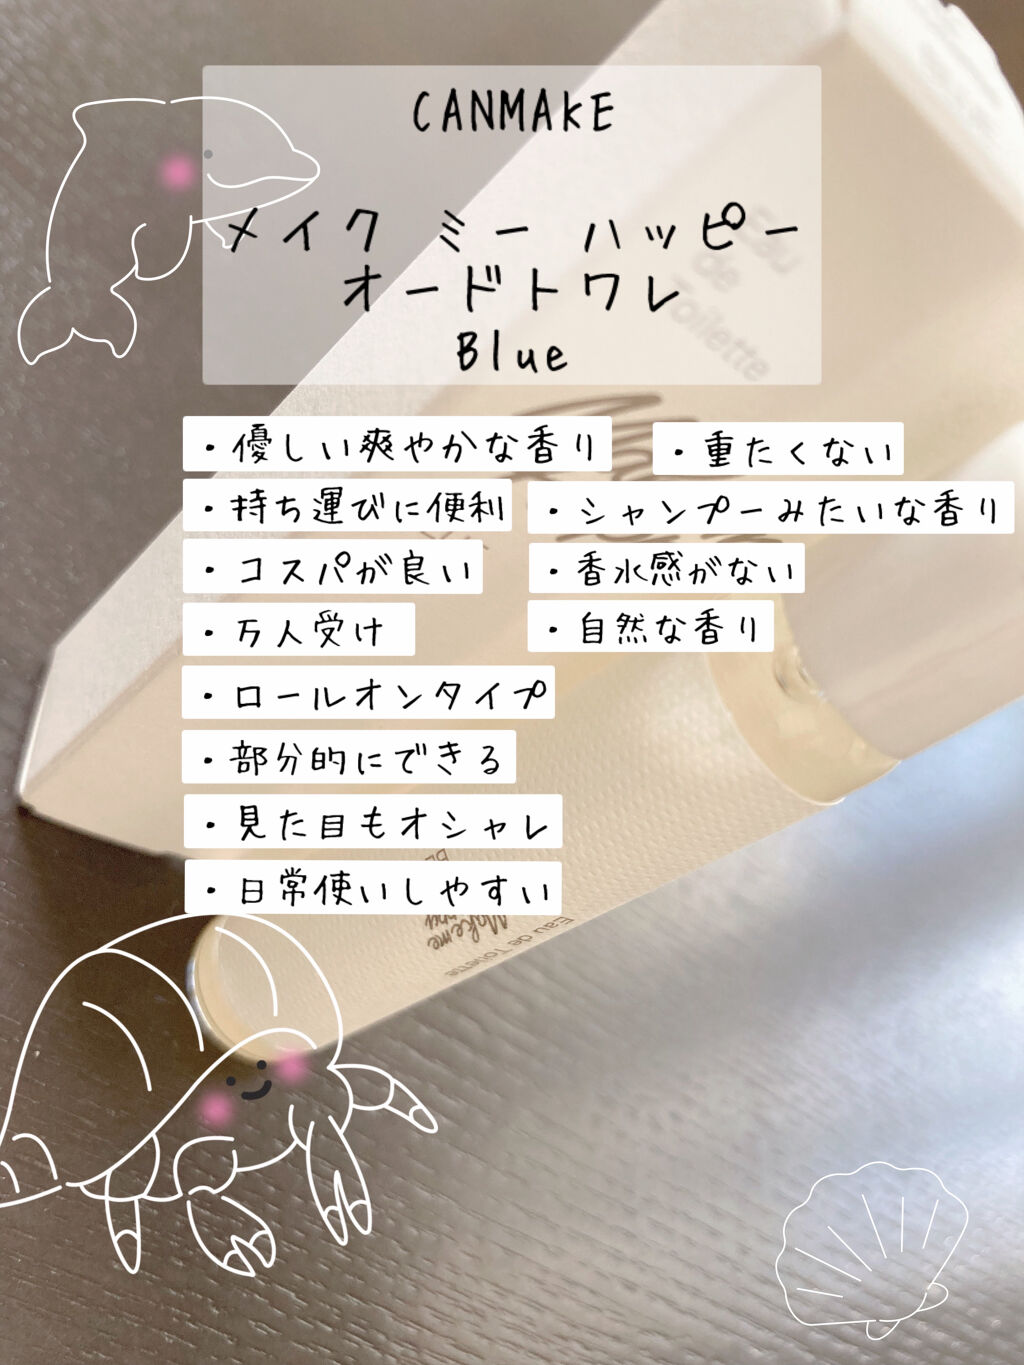 CANMAKE
メイク ミー ハッピー
オードトワレ
Blue
・優しい爽やかな香り
・持ち運びに便利
・コスパが良い
・万人受け
・ロールオンタイプ
・部分的にできる
・見た目もオシャレ
・日常使いしやすい
・重たくない
・シャンプーみたいな香り
・香水感がない
・自然な香り
Eau
de
Toilette
Make me
Eau de Toilette